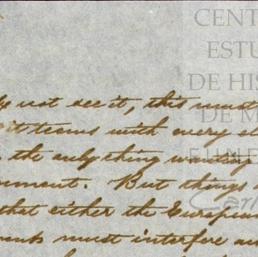 CENT
ESTU
DE HIS
DE M
FUNDE
Car
not see it, this must
it teems with every el
the only thing wanting
ment. But things
that either the European
ments must interfere